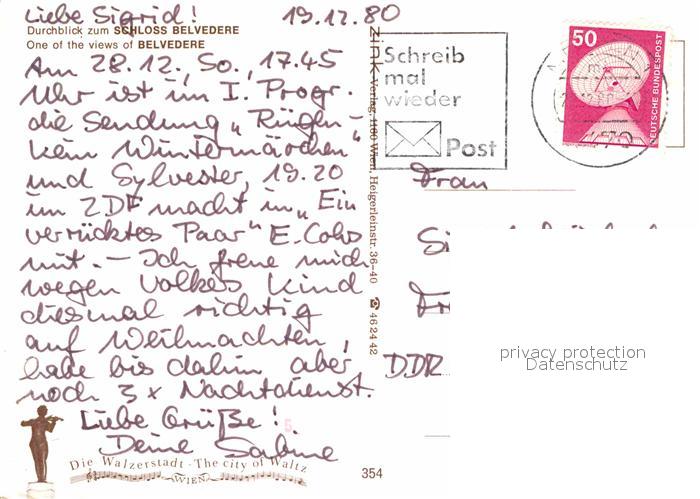 Liebe Sigrid! 19.12.80
Durchblick zum SCHLOSS BELVEDERE
One of the views of BELVEDERE
Am 28.12., So., 17.45
Uhr ist im I. Progr.
die Sendung „Rügen -
kein Wintermärchen"
und Sylvester, 19.20
im ZDF macht in „Ein
verrücktes Paar" E. Cohrs
mit. - Ich freue mich
wegen Volkes Kind
diesmal richtig
auf Weihnachten,
habe bis dahin aber
noch 3 x Nachtdienst.
Liebe Grüße!
Deine Sabine
5.
Die Walzerstadt - The city of Waltz
WIEN
Zink Verlag, 1180 Wien, Heigerleinstr. 36-40 ☎ 46 24 42
354
Schreib
mal
wieder
Post
50
DEUTSCHE BUNDESPOST
Frau
DDR
privacy protection
Datenschutz